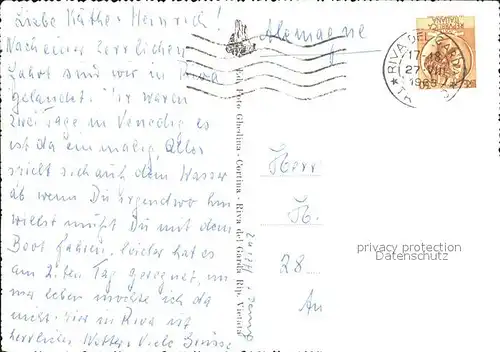 Liebe Käthe + Heinrich!
Nach einer herrlichen
Fahrt sind wir in Riva
gelandet. Wir waren
zwei Tage in Venedig es
ist da einmalig, Alles
spielt sich auf dem Wasser
ab wenn Du irgendwo hin
willst mußt Du mit dem
Boot fahren, leider hat es
am 2. ten Tag geregnet, un
ma leben möchte ich da
nicht. Hier in Riva ist
herrliches Wetter. Viele Grüsse
Ed. Foto Ghedina - Cortina - Riva del Garda Rip. Vietata
Alemagne
RIVA DEL GARDA
17-18
27.VIII
1969
Herr
H.
28
An
privacy protection
Datenschutz